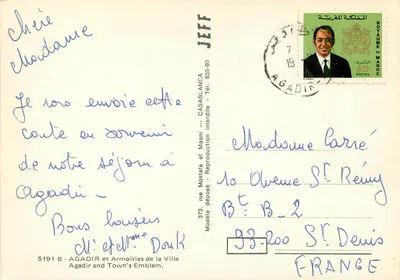 Chère
Madame
Je vous envoie cette
carte en souvenir
de notre séjour à
Agadir
Bons baisers
Mr et Mme
5191 B - AGADIR et Armoiries de la Ville
Agadir and Town's Emblem.
JEFF
373, rue Mostafa el Maani — CASABLANCA
Modèle déposé - Reproduction interdite - Tél. 635-93
المملكة المغربية
ROYAUME DU MAROC
POSTES
AGADIR
Madame Carré
10 Avenue St Rémy
Bt B_2
93-200 St Denis
FRANCE